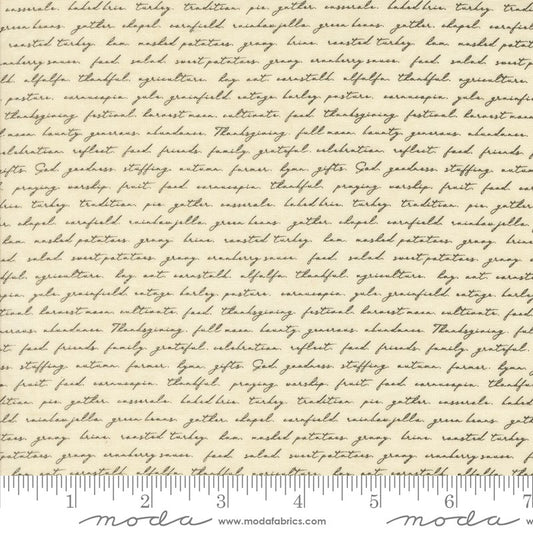 casserole. baked brie. turkey. tradition. pie. gather. casserole. baked brie. turkey. tradition.
green beans. gather. chapel. cornfield. rainbow jello. green beans. gather. chapel. cornfield.
roasted turkey. ham. mashed potatoes. gravy. brine. roasted turkey. ham. mashed
cranberry sauce. food. salad. sweet potatoes. gravy. cranberry sauce. food. salad. sweet
alfalfa. thankful. agriculture. hay. oat. cornstalk. alfalfa. thankful. agriculture.
pasture. cornucopia. yule. grainfield. cottage. barley. pasture. cornucopia. yule.
thanksgiving. festival. harvest moon. cultivate. food. thanksgiving. festival. harvest moon
bounty. generous. abundance. Thanksgiving. full moon. bounty. generous. abundance.
celebration. reflect. food. friends. family. grateful. celebration. reflect. food. friends.
gifts. God. goodness. stuffing. autumn. farmer. hymn. gifts. God. goodness. stuffing.
praying. worship. fruit. food. cornucopia. thankful. praying. worship. fruit. food.
turkey. tradition. pie. gather. casserole. baked brie. turkey. tradition. pie. gather.
chapel. cornfield. rainbow jello. green beans. gather. chapel. cornfield. rainbow jello.
ham. mashed potatoes. gravy. brine. roasted turkey. ham. mashed potatoes. gravy. brine
salad. sweet potatoes. gravy. cranberry sauce. food. salad. sweet potatoes. gravy.
agriculture. hay. oat. cornstalk. alfalfa. thankful. agriculture. hay. oat.
yule. grainfield. cottage. barley. pasture. cornucopia. yule. grainfield. cottage.
harvest moon. cultivate. food. thanksgiving. festival. harvest moon. cultivate. food.
abundance. Thanksgiving. full moon. bounty. generous. abundance. Thanksgiving.
food. friends. family. grateful. celebration. reflect. food. friends. family. grateful.
stuffing. autumn. farmer. hymn. gifts. God. goodness. stuffing. autumn. farmer. hymn.
fruit. food. cornucopia. thankful. praying. worship. fruit. food. cornucopia.
tradition. pie. gather. casserole. baked brie. turkey. tradition. pie. gather. casserole.
cornfield. rainbow jello. green beans. gather. chapel. cornfield. rainbow jello. green beans.
gravy. brine. roasted turkey. ham. mashed potatoes. gravy. brine. roasted turkey.
potatoes. gravy. cranberry sauce. food. salad. sweet potatoes. gravy. cranberry sauce.
hay. oat. cornstalk. alfalfa. thankful. agriculture. hay. oat. cornstalk. alfalfa.
1 2 3 4 5 6 7
moda www.modafabrics.com moda